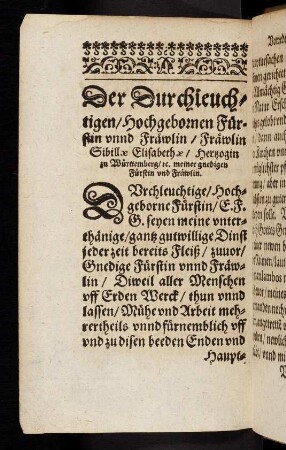 Der Durchleuch-
tigen/ Hochgebornen Für-
stin vnnd Fräwlin/ Fräwlin
Sibillæ Elisabethæ/ Hertzogin
zu Württemberg/ ꝛc. meiner gnedigen
Fürstin vnd Fräwlin.
DVrchleuchtige/ Hoch-
geborne Fürstin/ E. F.
G. seyen meine vnter-
thänige/ gantz gutwillige Dinst
jeder zeit bereits Fleiß/ zuuor/
Gnedige Fürstin vnnd Fräw-
lin/ Diweil aller Menschen
vff Erden Werck/ thun vnnd
lassen/ Mühe vnd Arbeit meh-
rertheils vnnd fürnemblich vff
vnd zu disen beeden Enden vnd
Haupt-